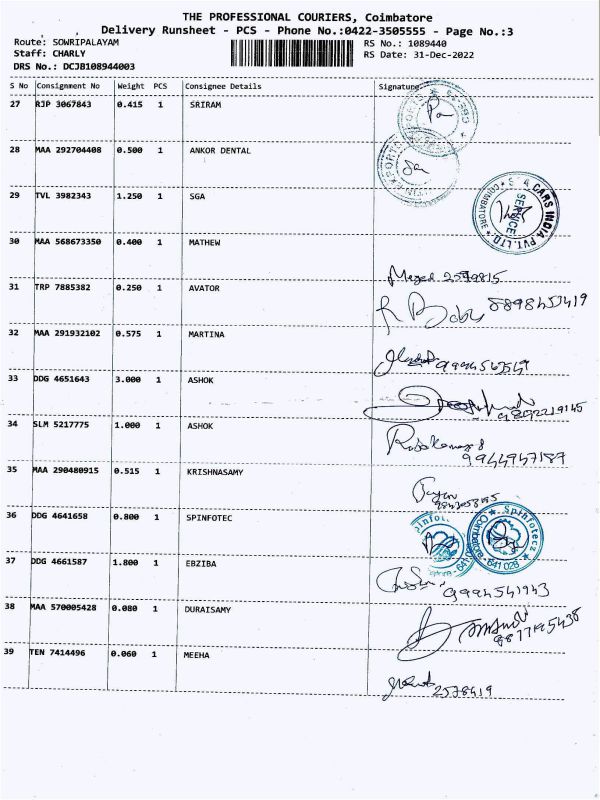 THE PROFESSIONAL COURIERS, Coimbatore
Delivery Runsheet - PCS - Phone No.:0422-3505555 - Page No.:3
Route: SOWRIPALAYAM RS No.: 1089440
Staff: CHARLY RS Date: 31-Dec-2022
DRS No.: DCJB108944003
S No Consignment No Weight PCS Consignee Details Signature
27 RJP 3067843 0.415 1 SRIRAM
28 MAA 292704408 0.500 1 ANKOR DENTAL
29 TVL 3982343 1.250 1 SGA
CARS INDIA PVT. LTD. SERVICE COIMBATORE
30 MAA 568673350 0.400 1 MATHEW
31 TRP 7885382 0.250 1 AVATOR
32 MAA 291932102 0.575 1 MARTINA
33 DDG 4651643 3.000 1 ASHOK
34 SLM 5217775 1.000 1 ASHOK
9944947189
35 MAA 290480915 0.515 1 KRISHNASAMY
36 DDG 4641658 0.800 1 SPINFOTEC
Spinfotecz Coimbatore-641 028
37 DDG 4661587 1.800 1 EBZIBA
9994541943
38 MAA 570005428 0.080 1 DURAISAMY
39 TEN 7414496 0.060 1 MEEHA
2578419